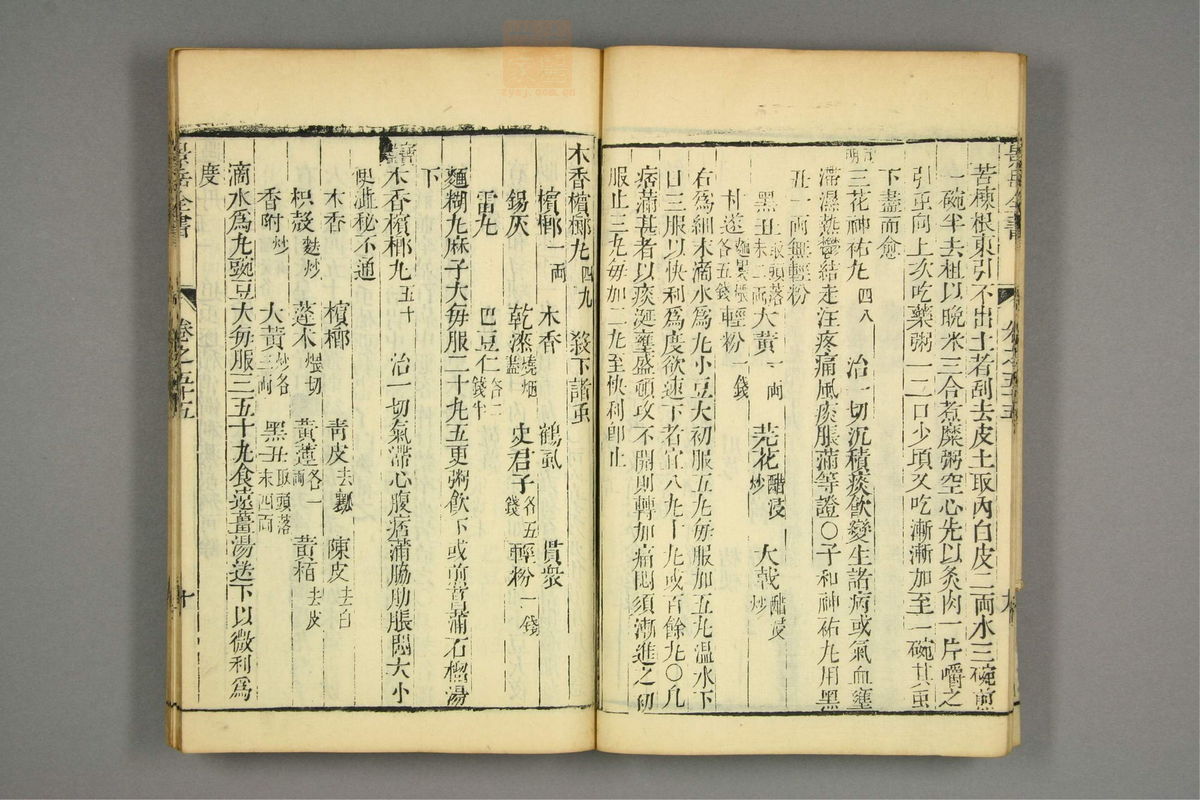 苦楝根東引不出土者刮去皮土取內白皮二兩水三碗煎
一碗半去柤以晚米三合煮糜粥空心先以炙肉一片嚼之
引蟲向上次吃藥粥一二口少頃又吃漸漸加至一碗其蟲
下盡而愈
三花神祐丸 四八 治一切沉積痰飲變生諸病或氣血壅
滯濕熱鬱結走注疼痛風痰脹滿等證○子和神祐丸用黑
丑一兩無輕粉
黑丑 取頭落末二兩 大黃 一兩 芫花 醋浸炒 大戟 醋浸炒
甘遂 麵裹煨各五錢 輕粉 一錢
右為細末滴水為丸小豆大初服五丸每服加五丸溫水下
日三服以快利為度欲速下者宜八九十丸或百餘丸○凡
痞滿甚者以痰涎壅盛頓攻不開則轉加痛悶須漸進之初
服止三丸每加二丸至快利卽止
景岳全書
卷之五十五
木香檳榔丸 四九 殺下諸蟲
檳榔 一兩 木香 鶴虱 貫衆
錫灰 乾漆 燒烟盡 史君子 各五錢 輕粉 一錢
雷丸 巴豆仁 各二錢半
麵糊丸麻子大每服二十丸五更粥飲下或菊曹蒲石榴湯
下
木香檳榔丸 五十 治一切氣滯心腹痞滿脇肋脹悶大小
便澁秘不通
木香 檳榔 靑皮 去瓤 陳皮 去白
枳殼 麩炒 蓬朮 煨切 黃連 各一兩 黃栢 去皮
香附 炒 大黃 炒各三兩 黑丑 取頭落末四兩
滴水為丸豌豆大每服三五十丸食遠薑湯送下以微利為
度
景岳全書
卷之五十五
十